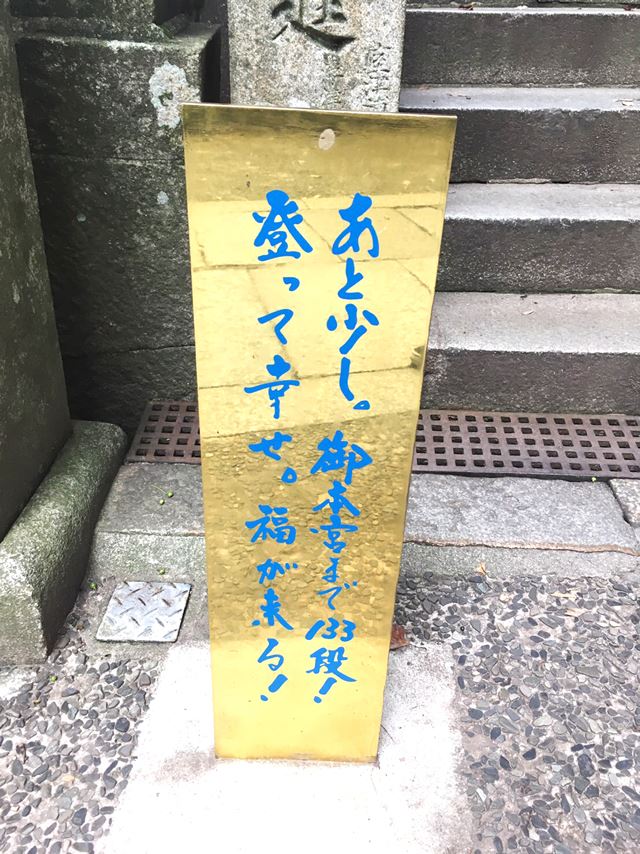 あと少し。御本宮まで133段!
登って幸せ。福が来る!